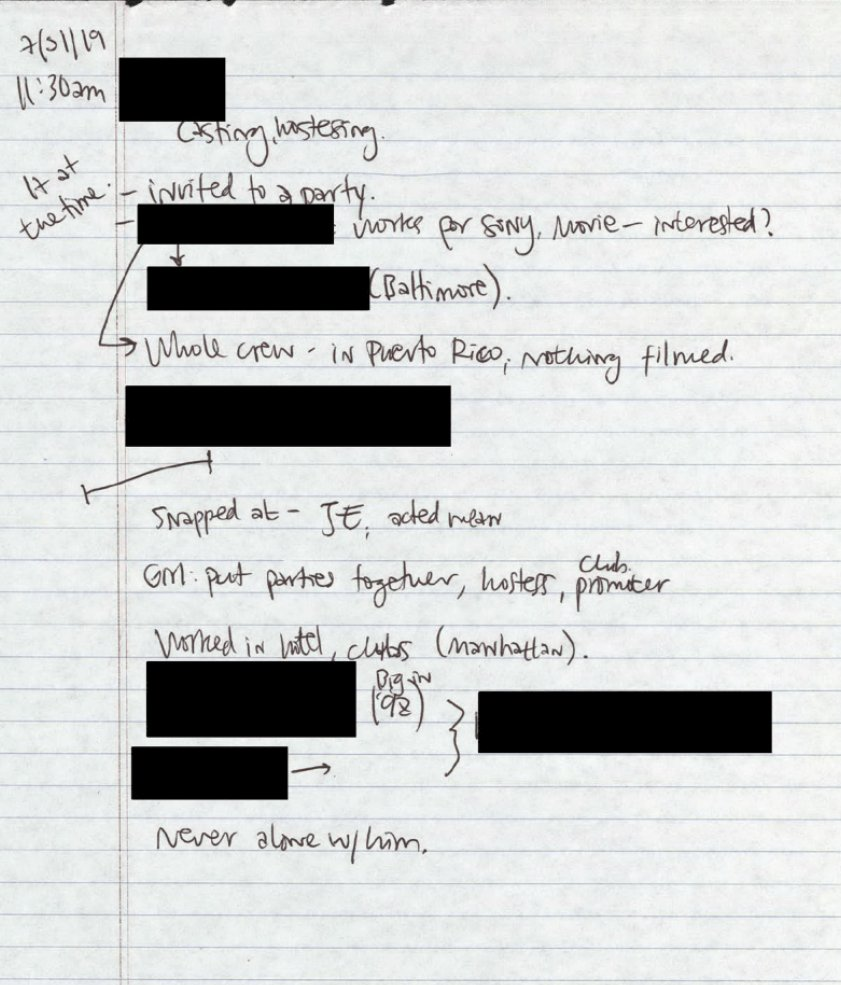 7/31/19
11:30am
Casting, hostessing.
17 at
the time.
- invited to a party.
- : works for Sony, movie - interested?
(Baltimore).
Whole crew - in Puerto Rico, nothing filmed.
Snapped at - JE, acted mean
GM: put parties together, hostess, club promoter
Worked in hotel, clubs (Manhattan).
Big in
('92)
Never alone w/ him.